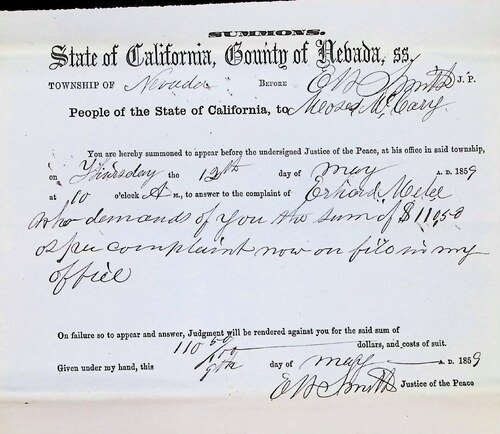 SUMMONS.
State of California, County of Nevada, ss.
TOWNSHIP OF Nevada BEFORE E W Smith J. P.
People of the State of California, to Moses McCarry.
You are hereby summoned to appear before the undersigned Justice of the Peace, at his office in said township,
on Thursday the 12th day of May A. D. 1859
at 10 o'clock A M., to answer to the complaint of Erhard
who demands of you the sum of $110,50
as per complaint now on file in my
office
On failure so to appear and answer, Judgment will be rendered against you for the said sum of
110 50/100 dollars, and costs of suit.
Given under my hand, this 9th day of May A. D. 1859
E W Smith Justice of the Peace